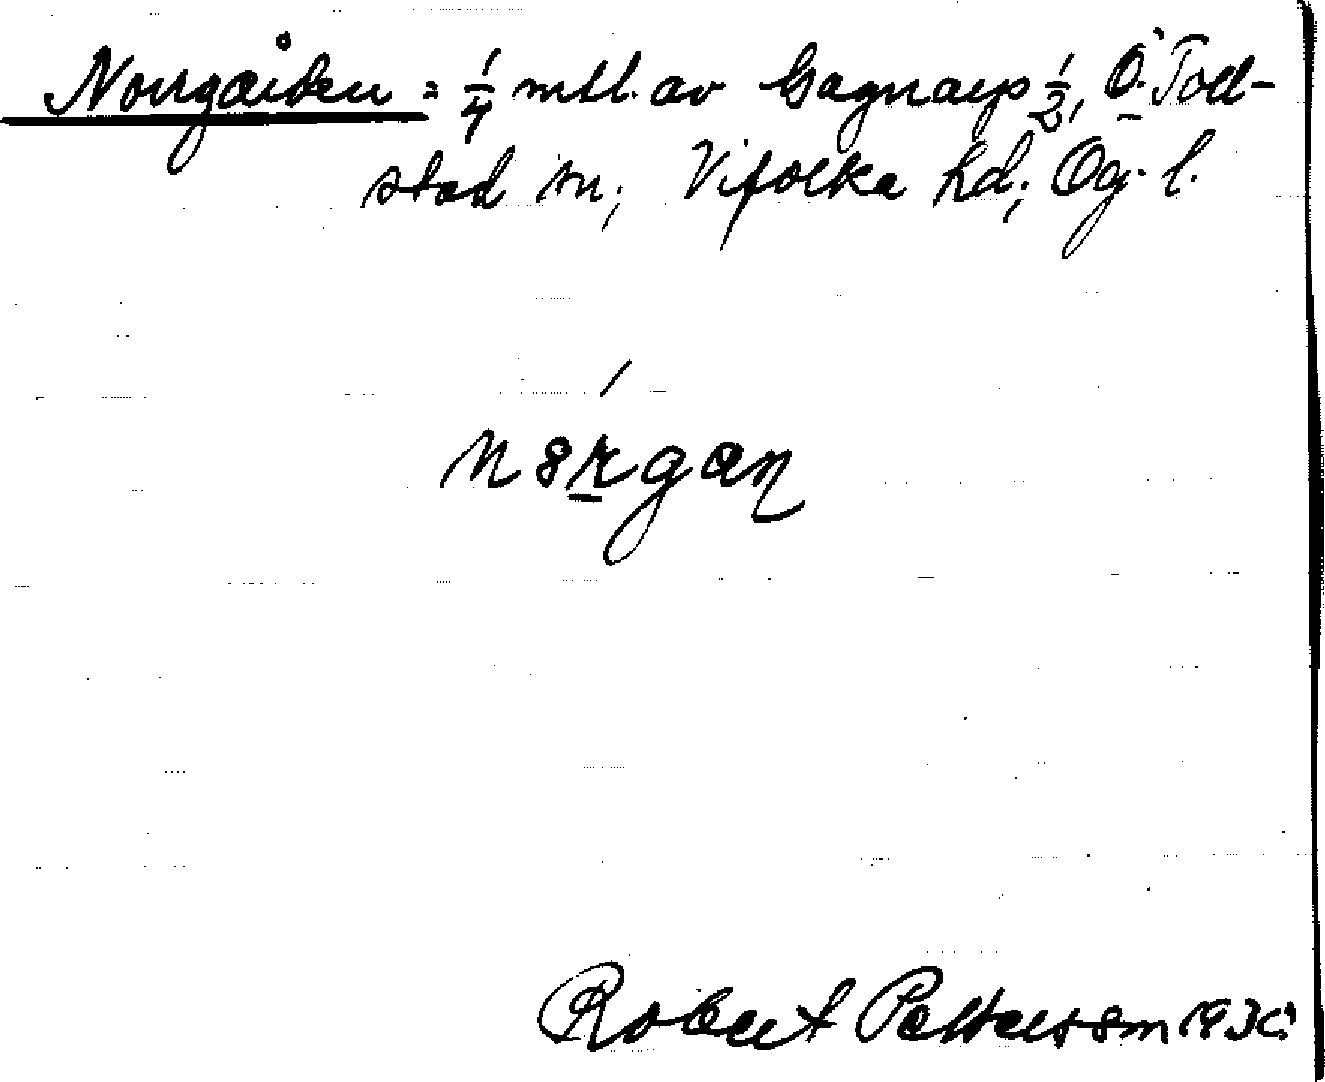 Norrgården = 1/4 mtl. av Gagnarp 1/2, Ö. Toll-
stad sn, Vifolka hd, Ög. l.
Robert Pettersson